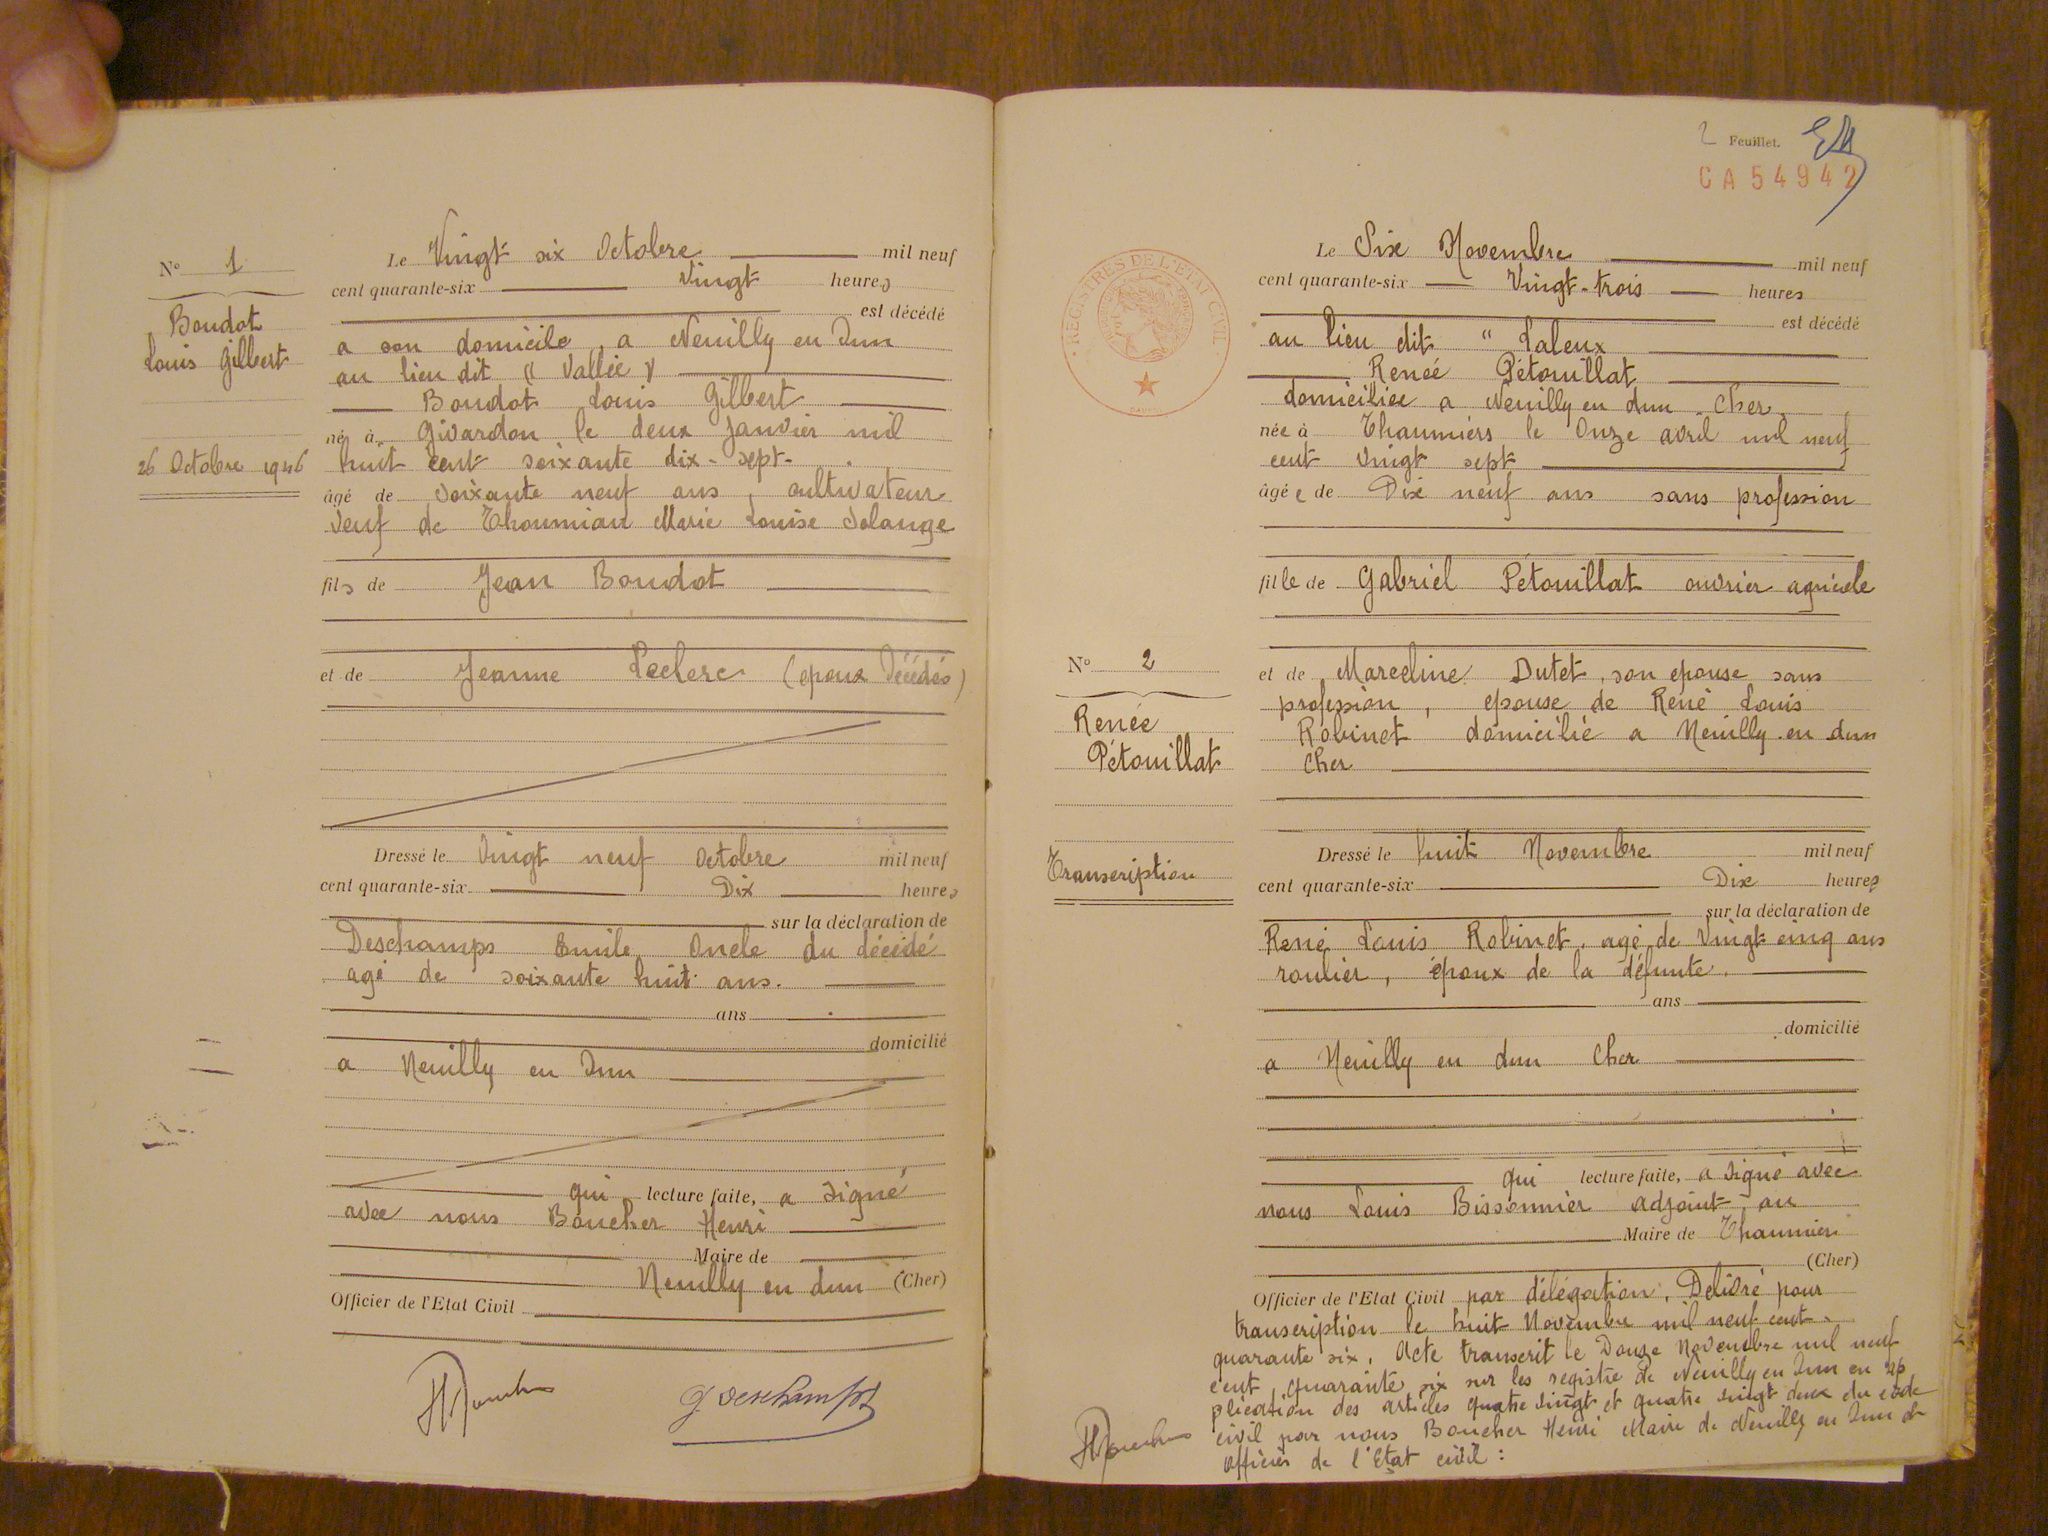 N° 1
Boudot
Louis Gilbert
26 Octobre 1946
Le Vingt six Octobre mil neuf
cent quarante-six vingt heures
est décédé
a son domicile, a Neuilly en Dun
au lieu dit " Vallée "
Boudot Louis Gilbert
né à Givardon le deux Janvier mil
huit cent soixante dix-sept-
âgé de soixante neuf ans, cultivateur
veuf de Thoumian Marie Louise Solange
fils de Jean Boudot
et de Jeanne Leclerc (epoux Décédés)
Dressé le Vingt neuf Octobre mil neuf
cent quarante-six Dix heures
sur la déclaration de
Deschamps Emile, Oncle du décédé
agé de soixante huit ans.
ans
domicilié
a Neuilly en Dun
qui lecture faite, a signé
avec nous Boucher Henri
Maire de
Neuilly en dun (Cher)
Officier de l'Etat Civil
HBoucher
G Deschamps
2 Feuillet.
CA 54942
REGISTRES DE L'ETAT CIVIL
Le Six Novembre mil neuf
cent quarante-six Vingt-trois heures
est décédé
au lieu dit " Laleux
Renée Pétouillat
domiciliée a Neuilly en dun Cher
née à Thaumiers le Onze avril mil neuf
cent vingt sept
âgée de Dix neuf ans sans profession
fille de Gabriel Pétouillat ouvrier agricole
N° 2
Renée
Pétouillat
Transcription
et de Marceline Dutet, son epouse sans
profession, epouse de René Louis
Robinet domicilié a Neuilly en dun
Cher
Dressé le huit Novembre mil neuf
cent quarante-six Dix heures
sur la déclaration de
René Louis Robinet, agé de Vingt cinq ans
roulier, époux de la défunte.
ans
domicilié
a Neuilly en dun Cher
qui lecture faite, a signé avec
nous Louis Bissonnier adjoint au
Maire de Thaumiers
(Cher)
Officier de l'Etat Civil par délégation. Délivré pour
transcription le huit Novembre mil neuf cent
quarante six. Acte transcrit le Douze Novembre mil neuf
cent quarante six sur les registre de Neuilly en Dun en ap
plication des articles quatre vingt et quatre vingt deux du code
civil par nous Boucher Henri Maire de Neuilly en Dun et
officier de l'Etat civil :
HBoucher